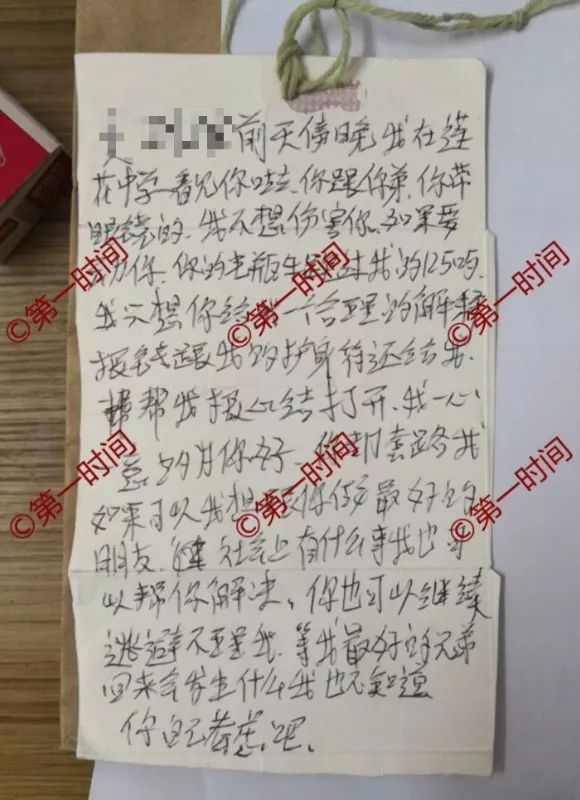 前天傍晚我在莲
花中学看见你哇.你跟你弟.你带
眼镜的.我不想伤害你.如果要
动你.你的电瓶车跑过我的125吗.
©第一时间
©第一时间
我只想你给我一个合理的解释
钱跟我的护身符还给我.
帮我把心结打开.我一心
©第一时间
©第一时间
意的对你好 你却套路我
如果可以我想跟你做最好的
©第一时间
©第一时间
朋友.社会上有什么事我也可
以帮你解决.你也可以继续
逃避不理我.等我最好的兄弟
回来会发生什么我也不知道
你自己考虑吧.